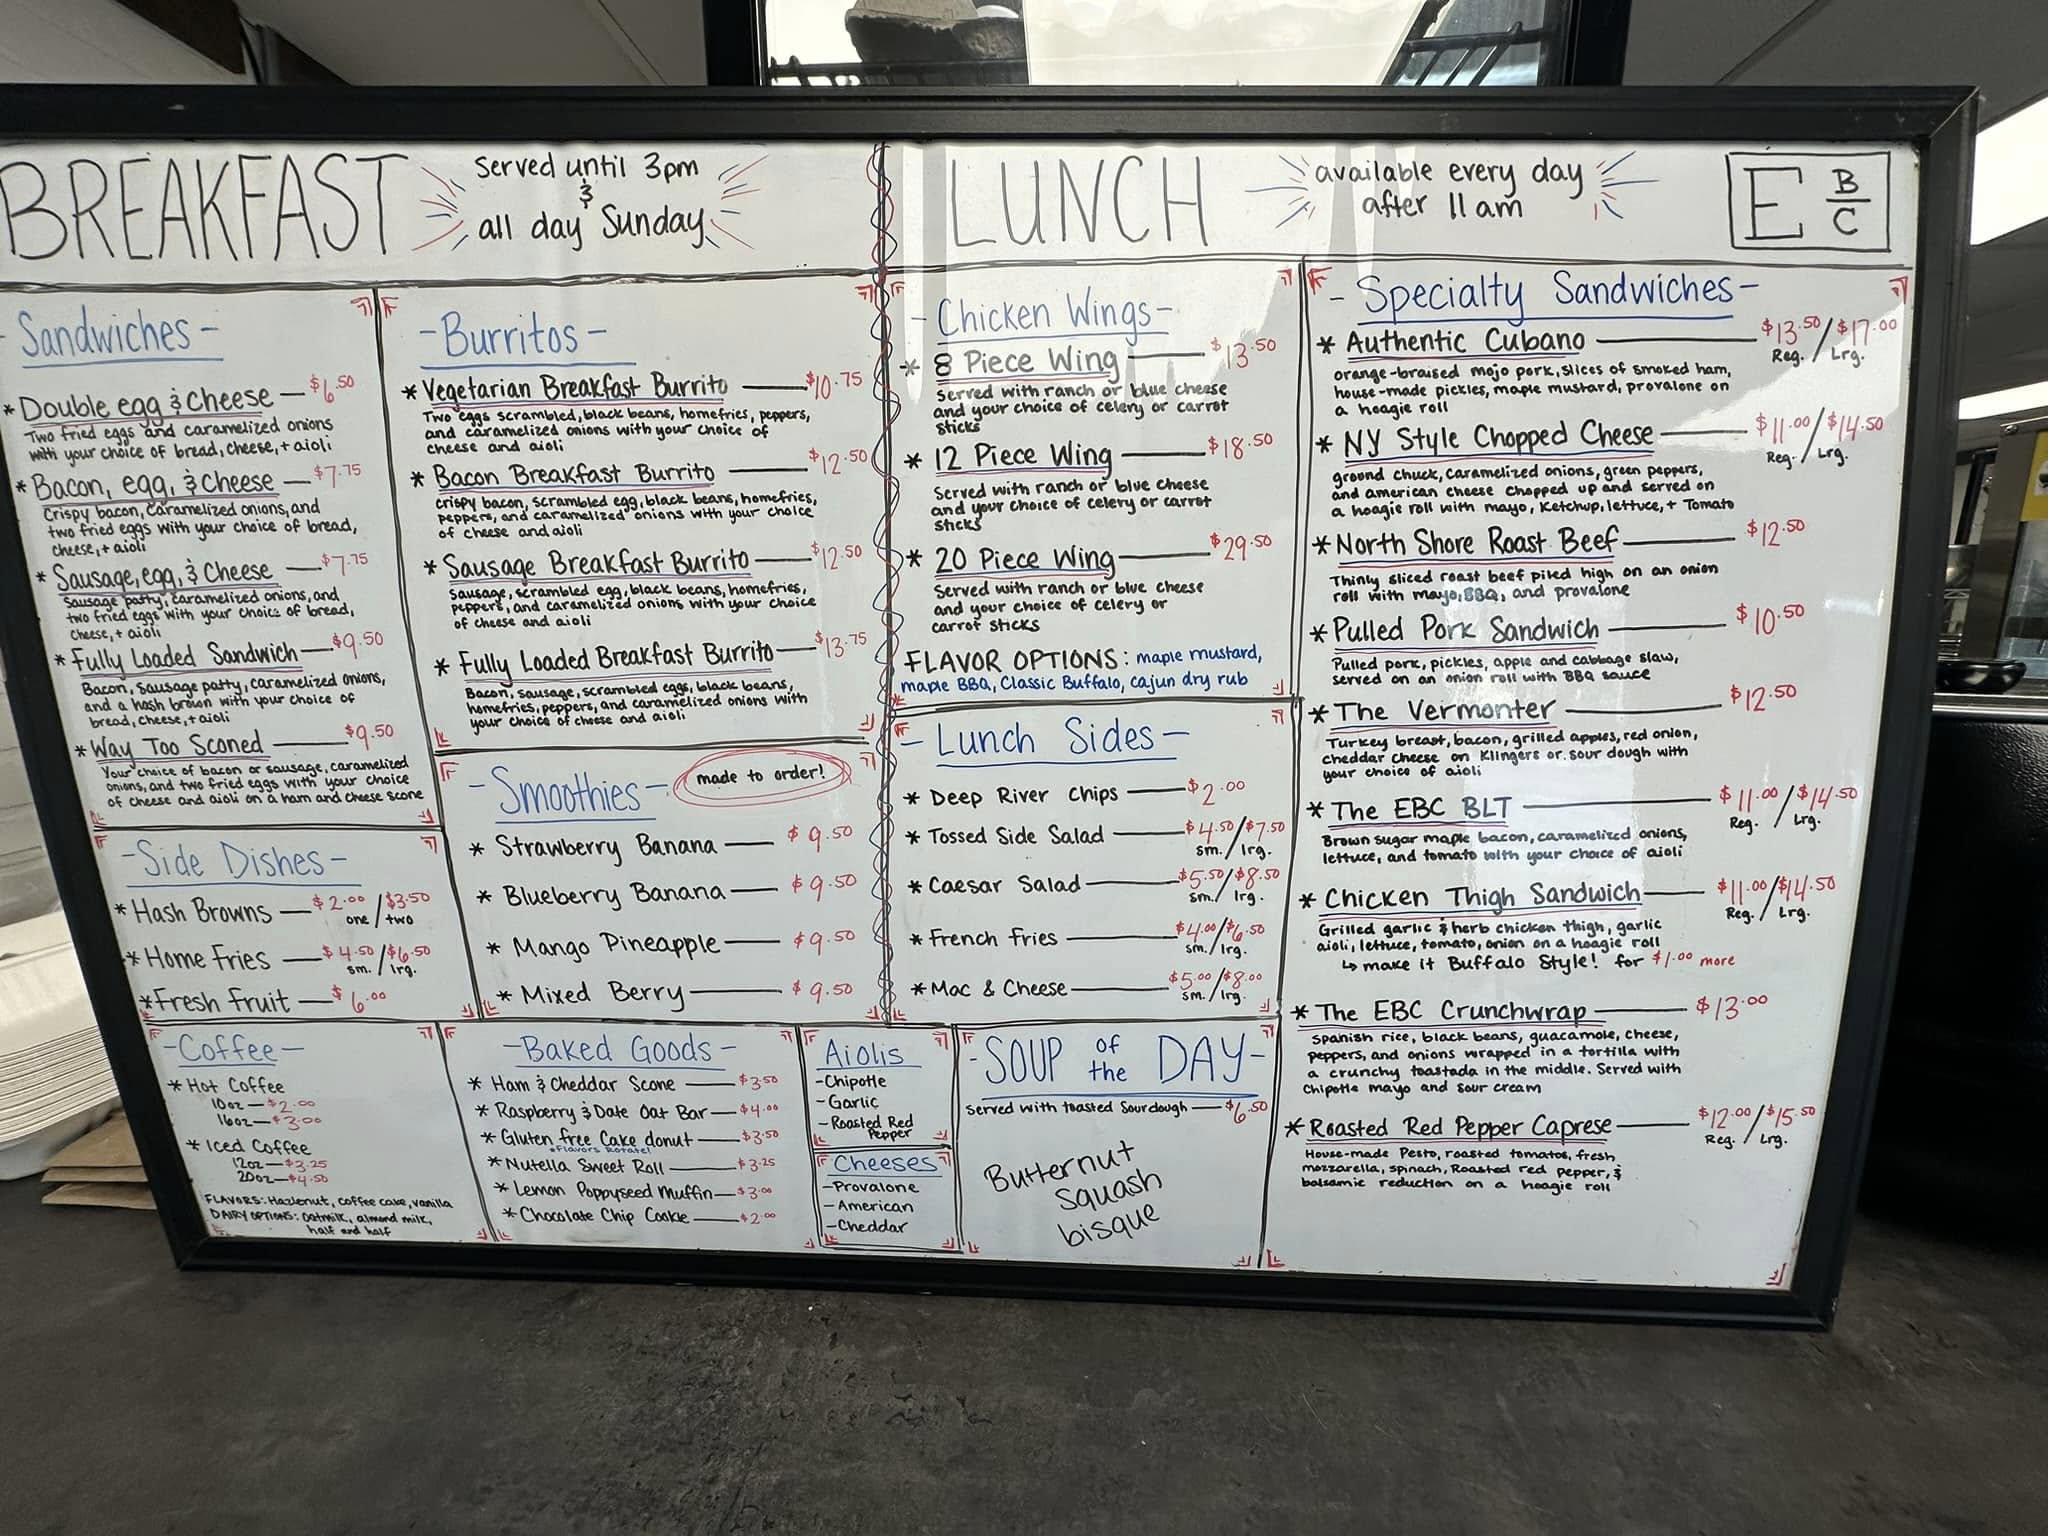 BREAKFAST
served until 3pm
&
all day Sunday
LUNCH
available every day
after 11am
E B/C
- Sandwiches -
* Double egg & Cheese — $6.50
Two fried eggs and caramelized onions
with your choice of bread, cheese, + aioli
* Bacon, egg, & Cheese — $7.75
Crispy bacon, caramelized onions, and
two fried eggs with your choice of bread,
cheese, + aioli
* Sausage, egg, & Cheese — $7.75
Sausage patty, caramelized onions, and
two fried eggs with your choice of bread,
cheese, + aioli
* Fully Loaded Sandwich — $9.50
Bacon, sausage patty, caramelized onions,
and a hash brown with your choice of
bread, cheese, + aioli
* Way Too Sconed — $9.50
Your choice of bacon or sausage, caramelized
onions, and two fried eggs with your choice
of cheese and aioli on a ham and cheese scone
- Side Dishes -
* Hash Browns — $2.00/$3.50
one / two
* Home Fries — $4.50/$6.50
sm. / lrg.
* Fresh Fruit — $6.00
- Coffee -
* Hot Coffee
10oz — $2.00
16oz — $3.00
* Iced Coffee
12oz — $3.25
20oz — $4.50
FLAVORS: Hazlenut, coffee cake, vanilla
DAIRY OPTIONS: Oatmilk, almond milk,
half and half
- Burritos -
* Vegetarian Breakfast Burrito — $10.75
Two eggs scrambled, black beans, homefries, peppers,
and caramelized onions with your choice of
cheese and aioli
* Bacon Breakfast Burrito — $12.50
Crispy bacon, scrambled egg, black beans, homefries,
peppers, and caramelized onions with your choice
of cheese and aioli
* Sausage Breakfast Burrito — $12.50
Sausage, scrambled egg, black beans, homefries,
peppers, and caramelized onions with your choice
of cheese and aioli
* Fully Loaded Breakfast Burrito — $13.75
Bacon, sausage, scrambled eggs, black beans,
homefries, peppers, and caramelized onions with
your choice of cheese and aioli
- Smoothies -
made to order!
* Strawberry Banana — $9.50
* Blueberry Banana — $9.50
* Mango Pineapple — $9.50
* Mixed Berry — $9.50
- Baked Goods -
* Ham & Cheddar Scone — $3.50
* Raspberry & Date Oat Bar — $4.00
* Gluten free Cake donut — $3.50
*Flavors Rotate!
* Nutella Sweet Roll — $3.25
* Lemon Poppyseed Muffin — $3.00
* Chocolate Chip Cookie — $2.00
Aiolis
- Chipotle
- Garlic
- Roasted Red
Pepper
Cheeses
- Provalone
- American
- Cheddar
- Chicken Wings -
* 8 Piece Wing — $13.50
Served with ranch or blue cheese
and your choice of celery or carrot
sticks
* 12 Piece Wing — $18.50
Served with ranch or blue cheese
and your choice of celery or carrot
sticks
* 20 Piece Wing — $29.50
Served with ranch or blue cheese
and your choice of celery or
carrot sticks
FLAVOR OPTIONS: maple mustard,
maple BBQ, Classic Buffalo, cajun dry rub
- Lunch Sides -
* Deep River Chips — $2.00
* Tossed Side Salad — $4.50/$7.50
sm. / lrg.
* Caesar Salad — $5.50/$8.50
sm. / lrg.
* French Fries — $4.00/$6.50
sm. / lrg.
* Mac & Cheese — $5.00/$8.00
sm. / lrg.
- SOUP of the DAY -
Served with toasted Sourdough — $6.50
Butternut
squash
bisque
- Specialty Sandwiches -
* Authentic Cubano — $13.50/$17.00
Reg. / Lrg.
orange-braised mojo pork, slices of smoked ham,
house-made pickles, maple mustard, provalone on
a hoagie roll
* NY Style Chopped Cheese — $11.00/$14.50
Reg. / Lrg.
ground chuck, caramelized onions, green peppers,
and american cheese chopped up and served on
a hoagie roll with mayo, Ketchup, lettuce, + Tomato
* North Shore Roast Beef — $12.50
Thinly sliced roast beef piled high on an onion
roll with mayo, BBQ, and provalone
* Pulled Pork Sandwich — $10.50
Pulled pork, pickles, apple and cabbage slaw,
served on an onion roll with BBQ sauce
* The Vermonter — $12.50
Turkey breast, bacon, grilled apples, red onion,
cheddar cheese on Klingers or sour dough with
your choice of aioli
* The EBC BLT — $11.00/$14.50
Reg. / Lrg.
Brown sugar maple bacon, caramelized onions,
lettuce, and tomato with your choice of aioli
* Chicken Thigh Sandwich — $11.00/$14.50
Reg. / Lrg.
Grilled garlic & herb chicken thigh, garlic
aioli, lettuce, tomato, onion on a hoagie roll
↳ make it Buffalo Style! for $1.00 more
* The EBC Crunchwrap — $13.00
Spanish rice, black beans, guacamole, cheese,
peppers, and onions wrapped in a tortilla with
a crunchy toastada in the middle. Served with
Chipotle mayo and sour cream
* Roasted Red Pepper Caprese — $12.00/$15.50
Reg. / Lrg.
House-made Pesto, roasted tomatos, fresh
mozzarella, spinach, Roasted red pepper, &
balsamic reduction on a hoagie roll